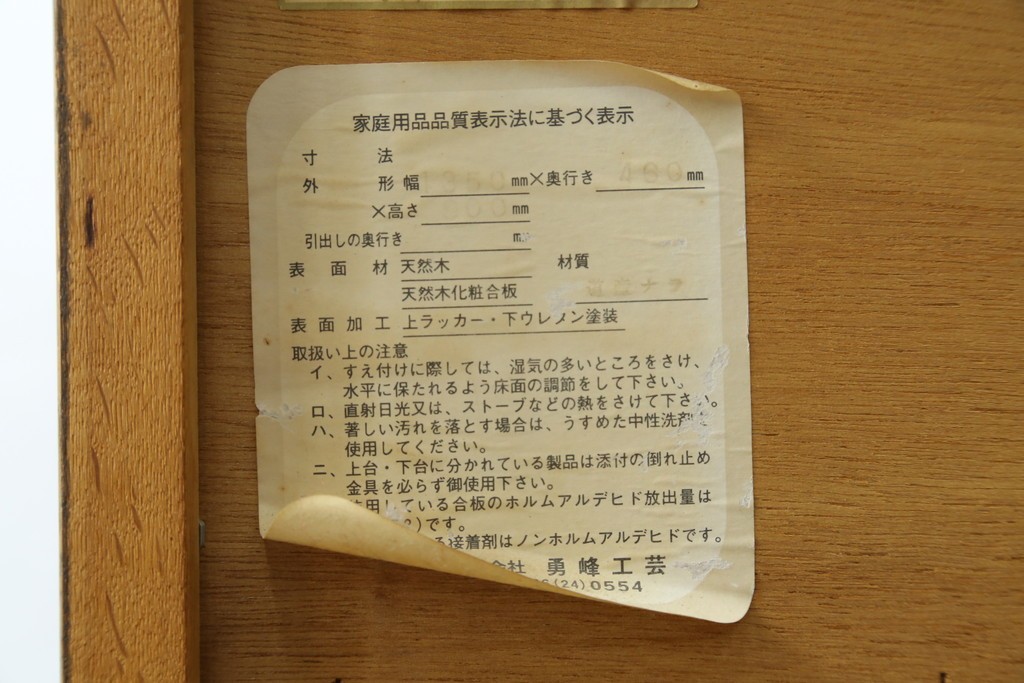 家庭用品品質表示法に基づく表示
寸法
外形 幅 mm×奥行き 460 mm
×高さ mm
引出しの奥行き mm
表面材 天然木 材質
天然木化粧合板
表面加工 上ラッカー・下ウレメン塗装
取扱い上の注意
イ、すえ付けに際しては、湿気の多いところをさけ、
水平に保たれるよう床面の調節をして下さい。
ロ、直射日光又は、ストーブなどの熱をさけて下さい。
ハ、著しい汚れを落とす場合は、うすめた中性洗剤を
使用してください。
ニ、上台・下台に分かれている製品は添付の倒れ止め
金具を必らず御使用下さい。
使用している合板のホルムアルデヒド放出量は
)です。
る接着剤はノンホルムアルデヒドです。
会社 勇峰工芸
(24)0554